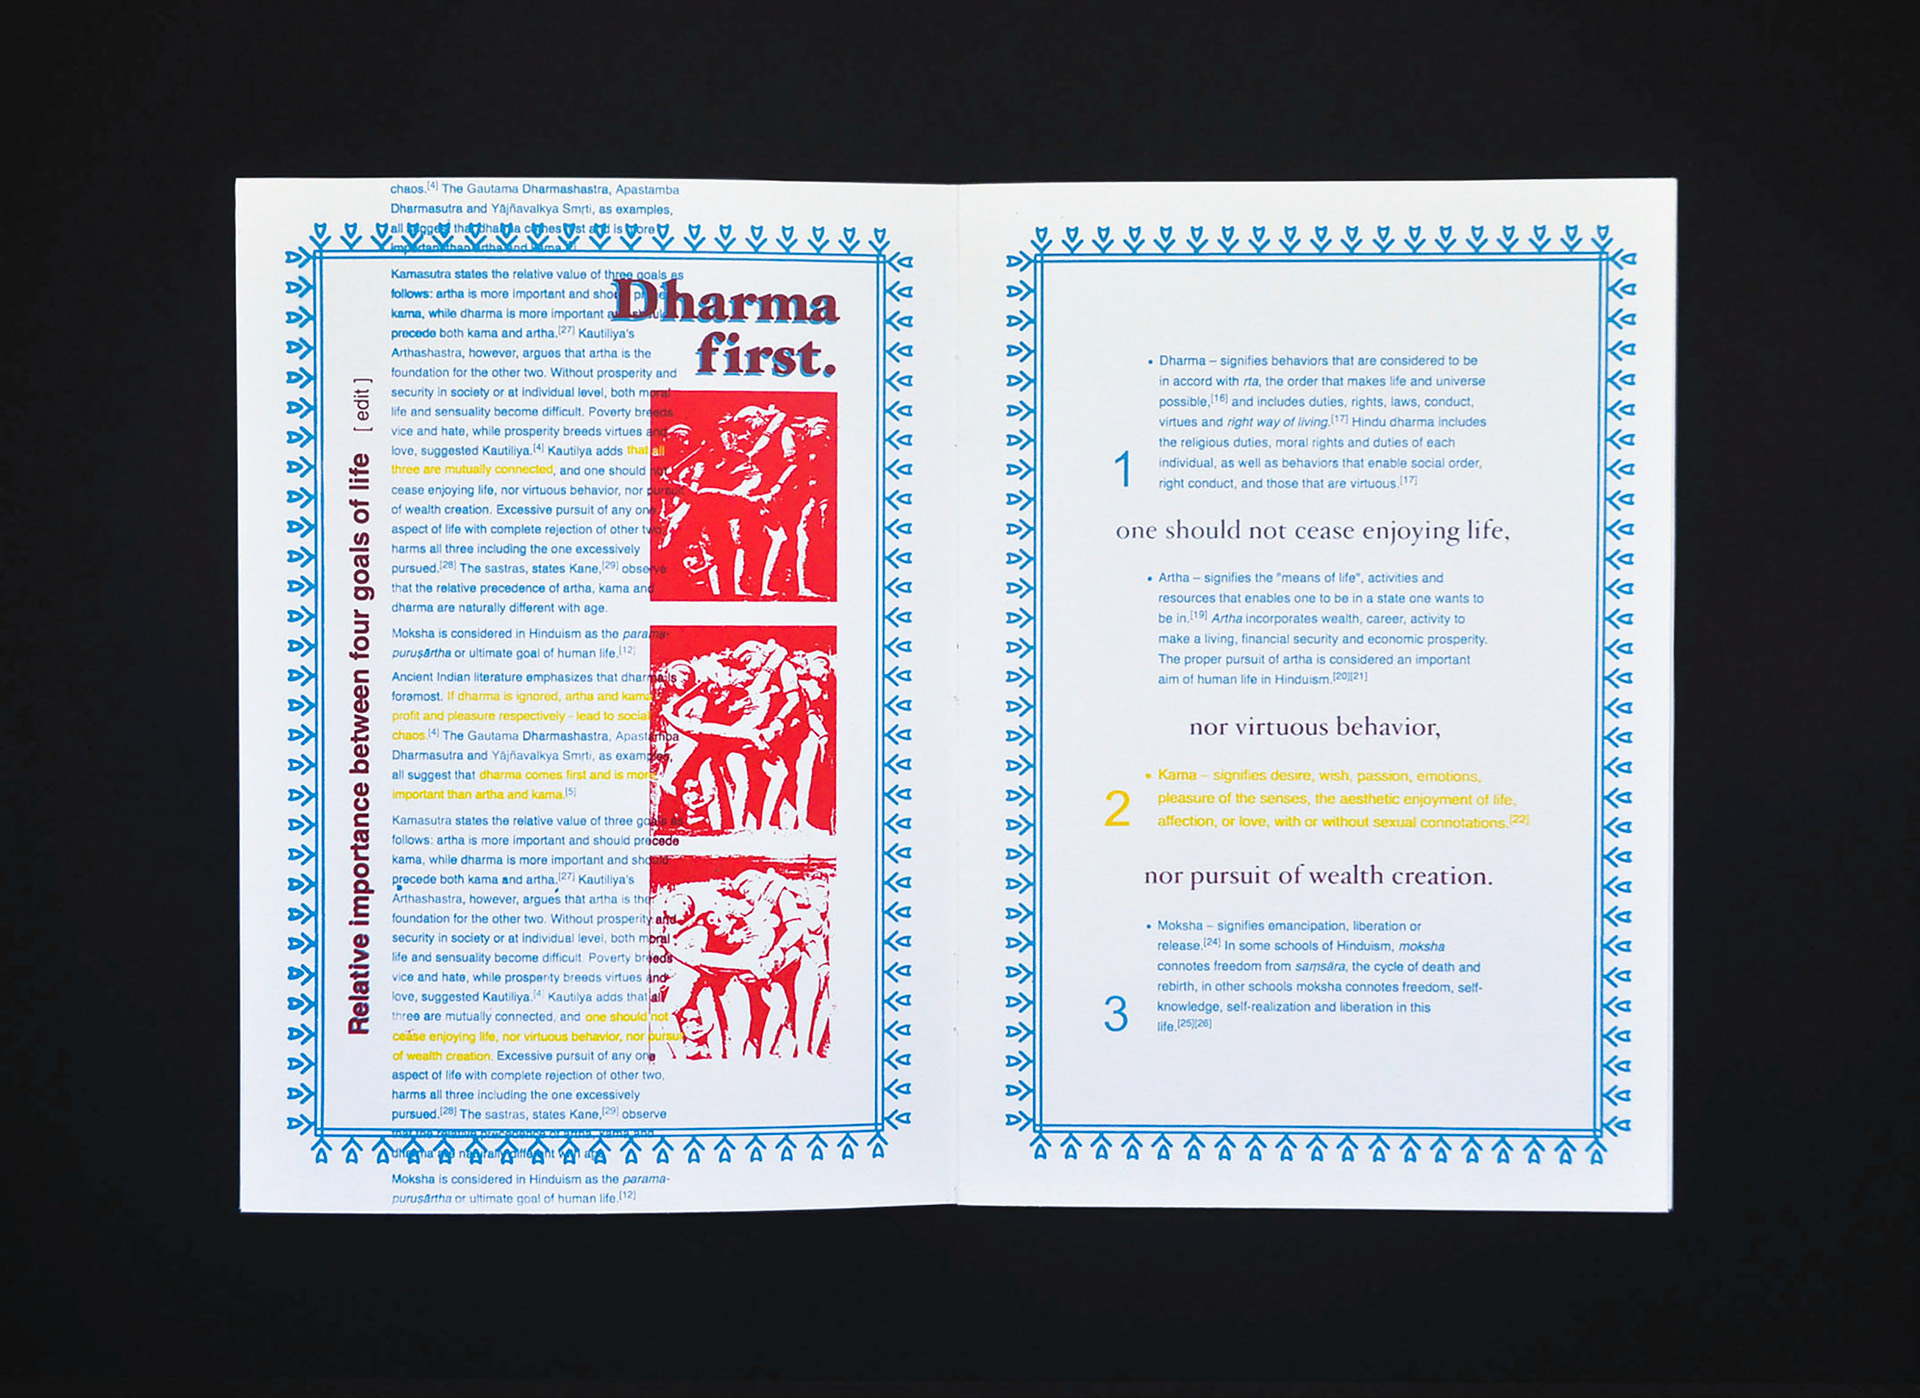 chaos.[4] The Gautama Dharmashastra, Apastamba
Dharmasutra and Yājñavalkya Smrti, as examples,
all suggest that dharma comes first and is more
important than artha and kama.[5]
Kamasutra states the relative value of three goals as
follows: artha is more important and should precede
kama, while dharma is more important and should
precede both kama and artha.[27] Kautiliya's
Arthashastra, however, argues that artha is the
foundation for the other two. Without prosperity and
security in society or at individual level, both moral
life and sensuality become difficult. Poverty breeds
vice and hate, while prosperity breeds virtues and
love, suggested Kautiliya.[4] Kautilya adds that all
three are mutually connected, and one should not
cease enjoying life, nor virtuous behavior, nor pursuit
of wealth creation. Excessive pursuit of any one
aspect of life with complete rejection of other two,
harms all three including the one excessively
pursued.[28] The sastras, states Kane,[29] observe
that the relative precedence of artha, kama and
dharma are naturally different with age.
Moksha is considered in Hinduism as the parama-
puruṣārtha or ultimate goal of human life.[12]
Ancient Indian literature emphasizes that dharma is
foremost. If dharma is ignored, artha and kama -
profit and pleasure respectively - lead to social
chaos.[4] The Gautama Dharmashastra, Apastamba
Dharmasutra and Yājñavalkya Smrti, as examples,
all suggest that dharma comes first and is more
important than artha and kama.[5]
Kamasutra states the relative value of three goals as
follows: artha is more important and should precede
kama, while dharma is more important and should
precede both kama and artha.[27] Kautiliya's
Arthashastra, however, argues that artha is the
foundation for the other two. Without prosperity and
security in society or at individual level, both moral
life and sensuality become difficult. Poverty breeds
vice and hate, while prosperity breeds virtues and
love, suggested Kautiliya.[4] Kautilya adds that all
three are mutually connected, and one should not
cease enjoying life, nor virtuous behavior, nor pursuit
of wealth creation. Excessive pursuit of any one
aspect of life with complete rejection of other two,
harms all three including the one excessively
pursued.[28] The sastras, states Kane,[29] observe
that the relative precedence of artha, kama and
dharma are naturally different with age.
Moksha is considered in Hinduism as the parama-
puruṣārtha or ultimate goal of human life.[12]
Relative importance between four goals of life [ edit ]
Dharma
first.
1
• Dharma – signifies behaviors that are considered to be
in accord with rta, the order that makes life and universe
possible,[16] and includes duties, rights, laws, conduct,
virtues and right way of living.[17] Hindu dharma includes
the religious duties, moral rights and duties of each
individual, as well as behaviors that enable social order,
right conduct, and those that are virtuous.[17]
one should not cease enjoying life,
• Artha – signifies the "means of life", activities and
resources that enables one to be in a state one wants to
be in.[19] Artha incorporates wealth, career, activity to
make a living, financial security and economic prosperity.
The proper pursuit of artha is considered an important
aim of human life in Hinduism.[20][21]
nor virtuous behavior,
2
• Kama – signifies desire, wish, passion, emotions,
pleasure of the senses, the aesthetic enjoyment of life,
affection, or love, with or without sexual connotations.[22]
nor pursuit of wealth creation.
3
• Moksha – signifies emancipation, liberation or
release.[24] In some schools of Hinduism, moksha
connotes freedom from saṃsāra, the cycle of death and
rebirth, in other schools moksha connotes freedom, self-
knowledge, self-realization and liberation in this
life.[25][26]